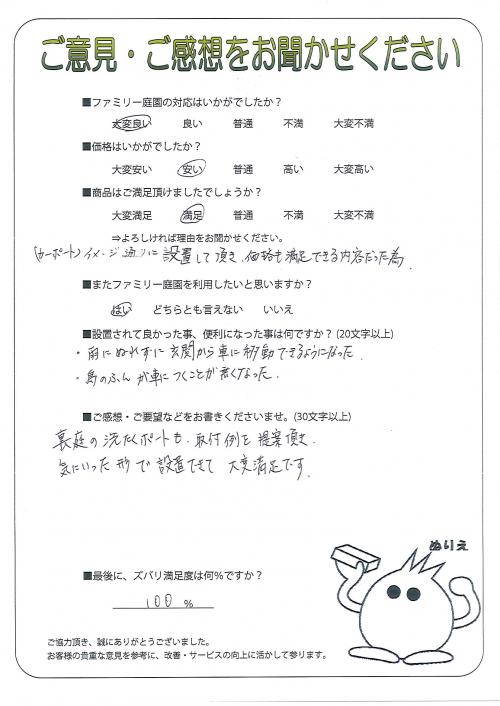 ご意見・ご感想をお聞かせください
■ファミリー庭園の対応はいかがでしたか？
大変良い 良い 普通 不満 大変不満
■価格はいかがでしたか？
大変安い 安い 普通 高い 大変高い
■商品はご満足頂けましたでしょうか？
大変満足 満足 普通 不満 大変不満
⇒よろしければ理由をお聞かせください。
(カーポート)イメージ通りに設置して頂き、価格も満足できる内容だった為。
■またファミリー庭園を利用したいと思いますか？
はい どちらとも言えない いいえ
■設置されて良かった事、便利になった事は何ですか？(20文字以上)
・雨にぬれずに玄関から車に移動できるようになった。
・鳥のふんが車につくことが無くなった。
■ご感想・ご要望などをお書きくださいませ。(30文字以上)
裏庭の洗たくポートも、取付例を提案頂き、
気にいった形で設置できて大変満足です。
ぬりえ
■最後に、ズバリ満足度は何％ですか？
100 %
ご協力頂き、誠にありがとうございました。
お客様の貴重な意見を参考に、改善・サービスの向上に活かして参ります。